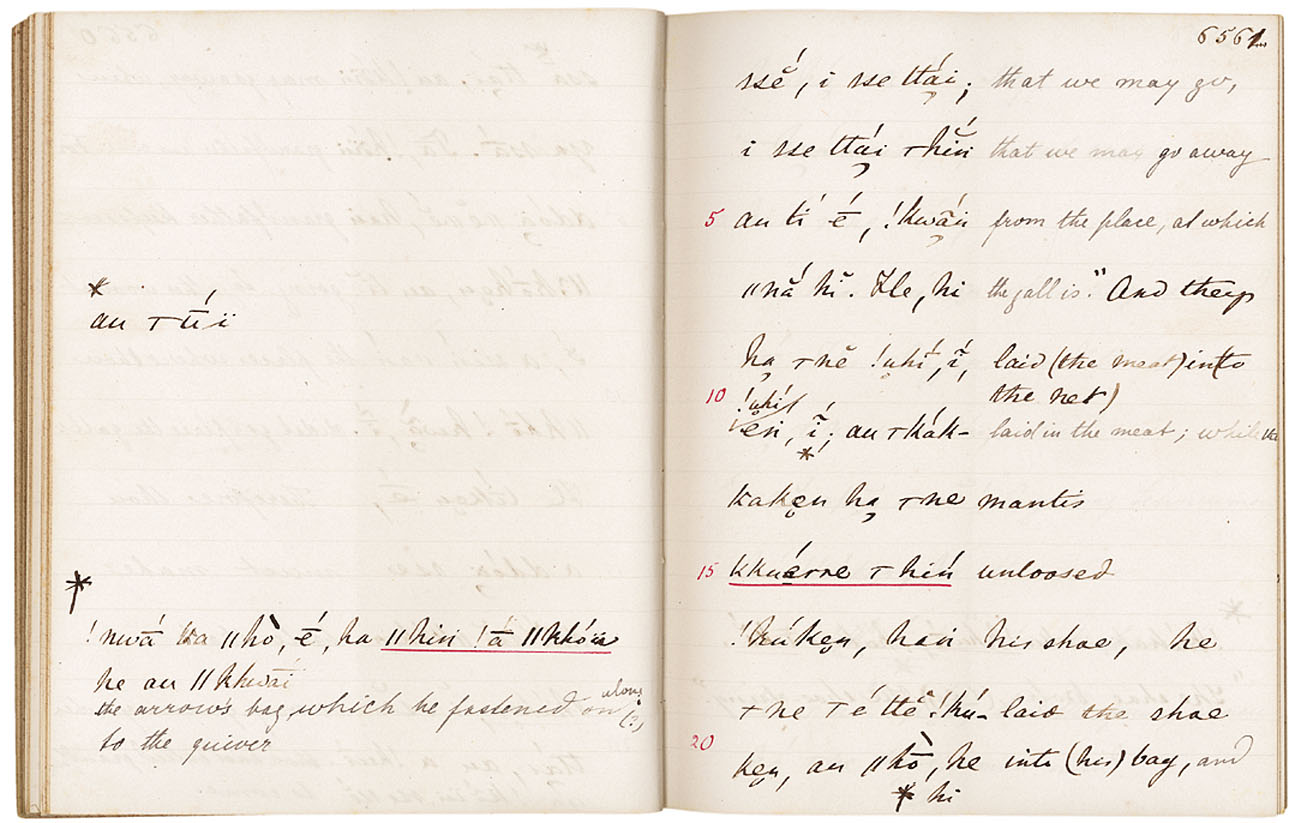 *
au ⊤ū́ï
*
!nwā́ ka ǁhò̄, ē̆́, ha ǁhiṅ !ā́ ǁkhóä
he au ǁkhwaī́
the arrows bag, which he fastened on along (?)
to the quiver
6561
ssĕ́, i sse ttá̤i; that we may go,
i sse ttá̤i ⊤hĭń that we may go away
5 au tí ē̆́, !kwā̤́ń from the place, at which
ǁnắ hĭ. Hĕ, hi the gall is." And they
ha̤ ⊤nĕ !uhí, ĩ́, laid (the meat) into
10 !uhí the net)
én, ĩ́; au ⊤kák- laid in the meat; while the
*
kaken ha̤ ⊤ne mantis
15 kkuérre ⊤hiń unloosed
!kúken, hań his shoe, he
⊤ne ⊤é ttĕ !kú- laid the shoe
20 ken, au ǁhò̄, he into (his) bag, and
* hi